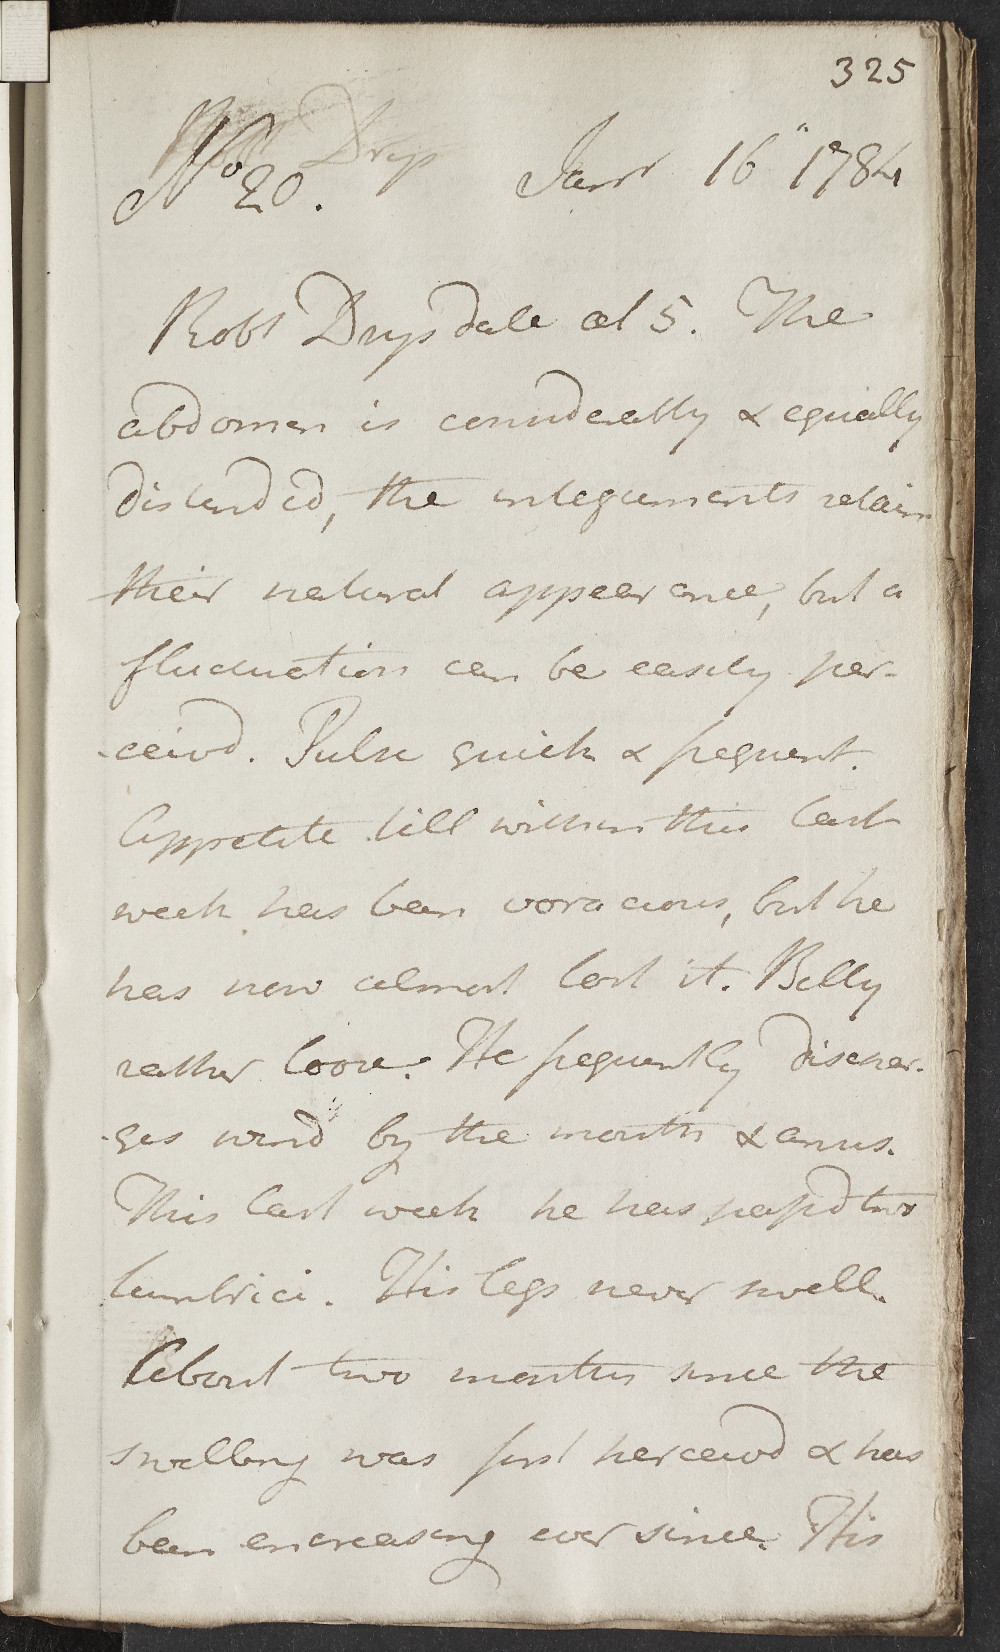 325
No 20. Janr 16" 1784
Robt Drysdale æt 5. The
abdomen is considerably & equally
distended, the integuments retain
their natural appearance, but a
fluctuation can be easily per-
-ceivd. Pulse quick & frequent.
Appetite till within this last
week has been voracious, but he
has now almost lost it. Belly
rather loose. He frequently dischar-
-ges wind by the mouth & anus.
This last week he has passd two
lumbrici. His legs never swell.
About two months since the
swelling was first perceivd & has
been encreasing ever since. His